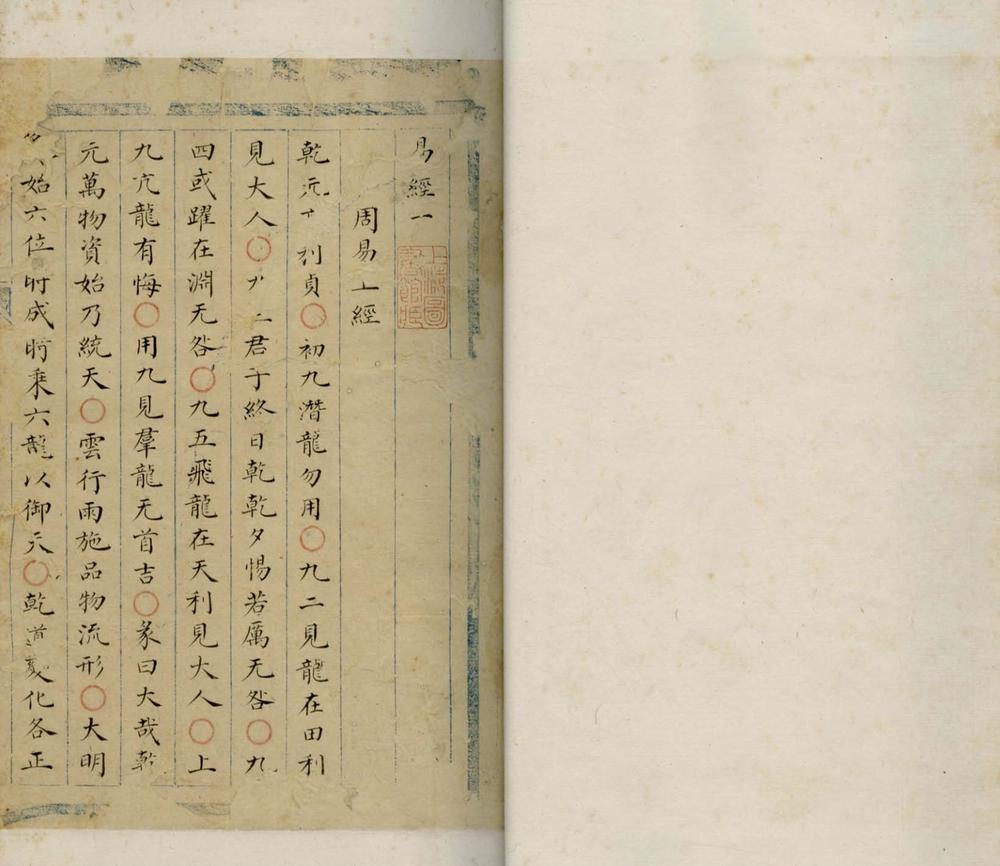 易經一
上海圖書館藏
周易上經
乾元 利貞○初九潛龍勿用○九二見龍在田利
見大人○九 君子終日乾乾夕惕若厲无咎○九
四或躍在淵无咎○九五飛龍在天利見大人○上
九亢龍有悔○用九見羣龍无首吉○彖曰大哉乾
元萬物資始乃統天○雲行雨施品物流形○大明
始六位時成時乘六龍以御天○乾道變化各正